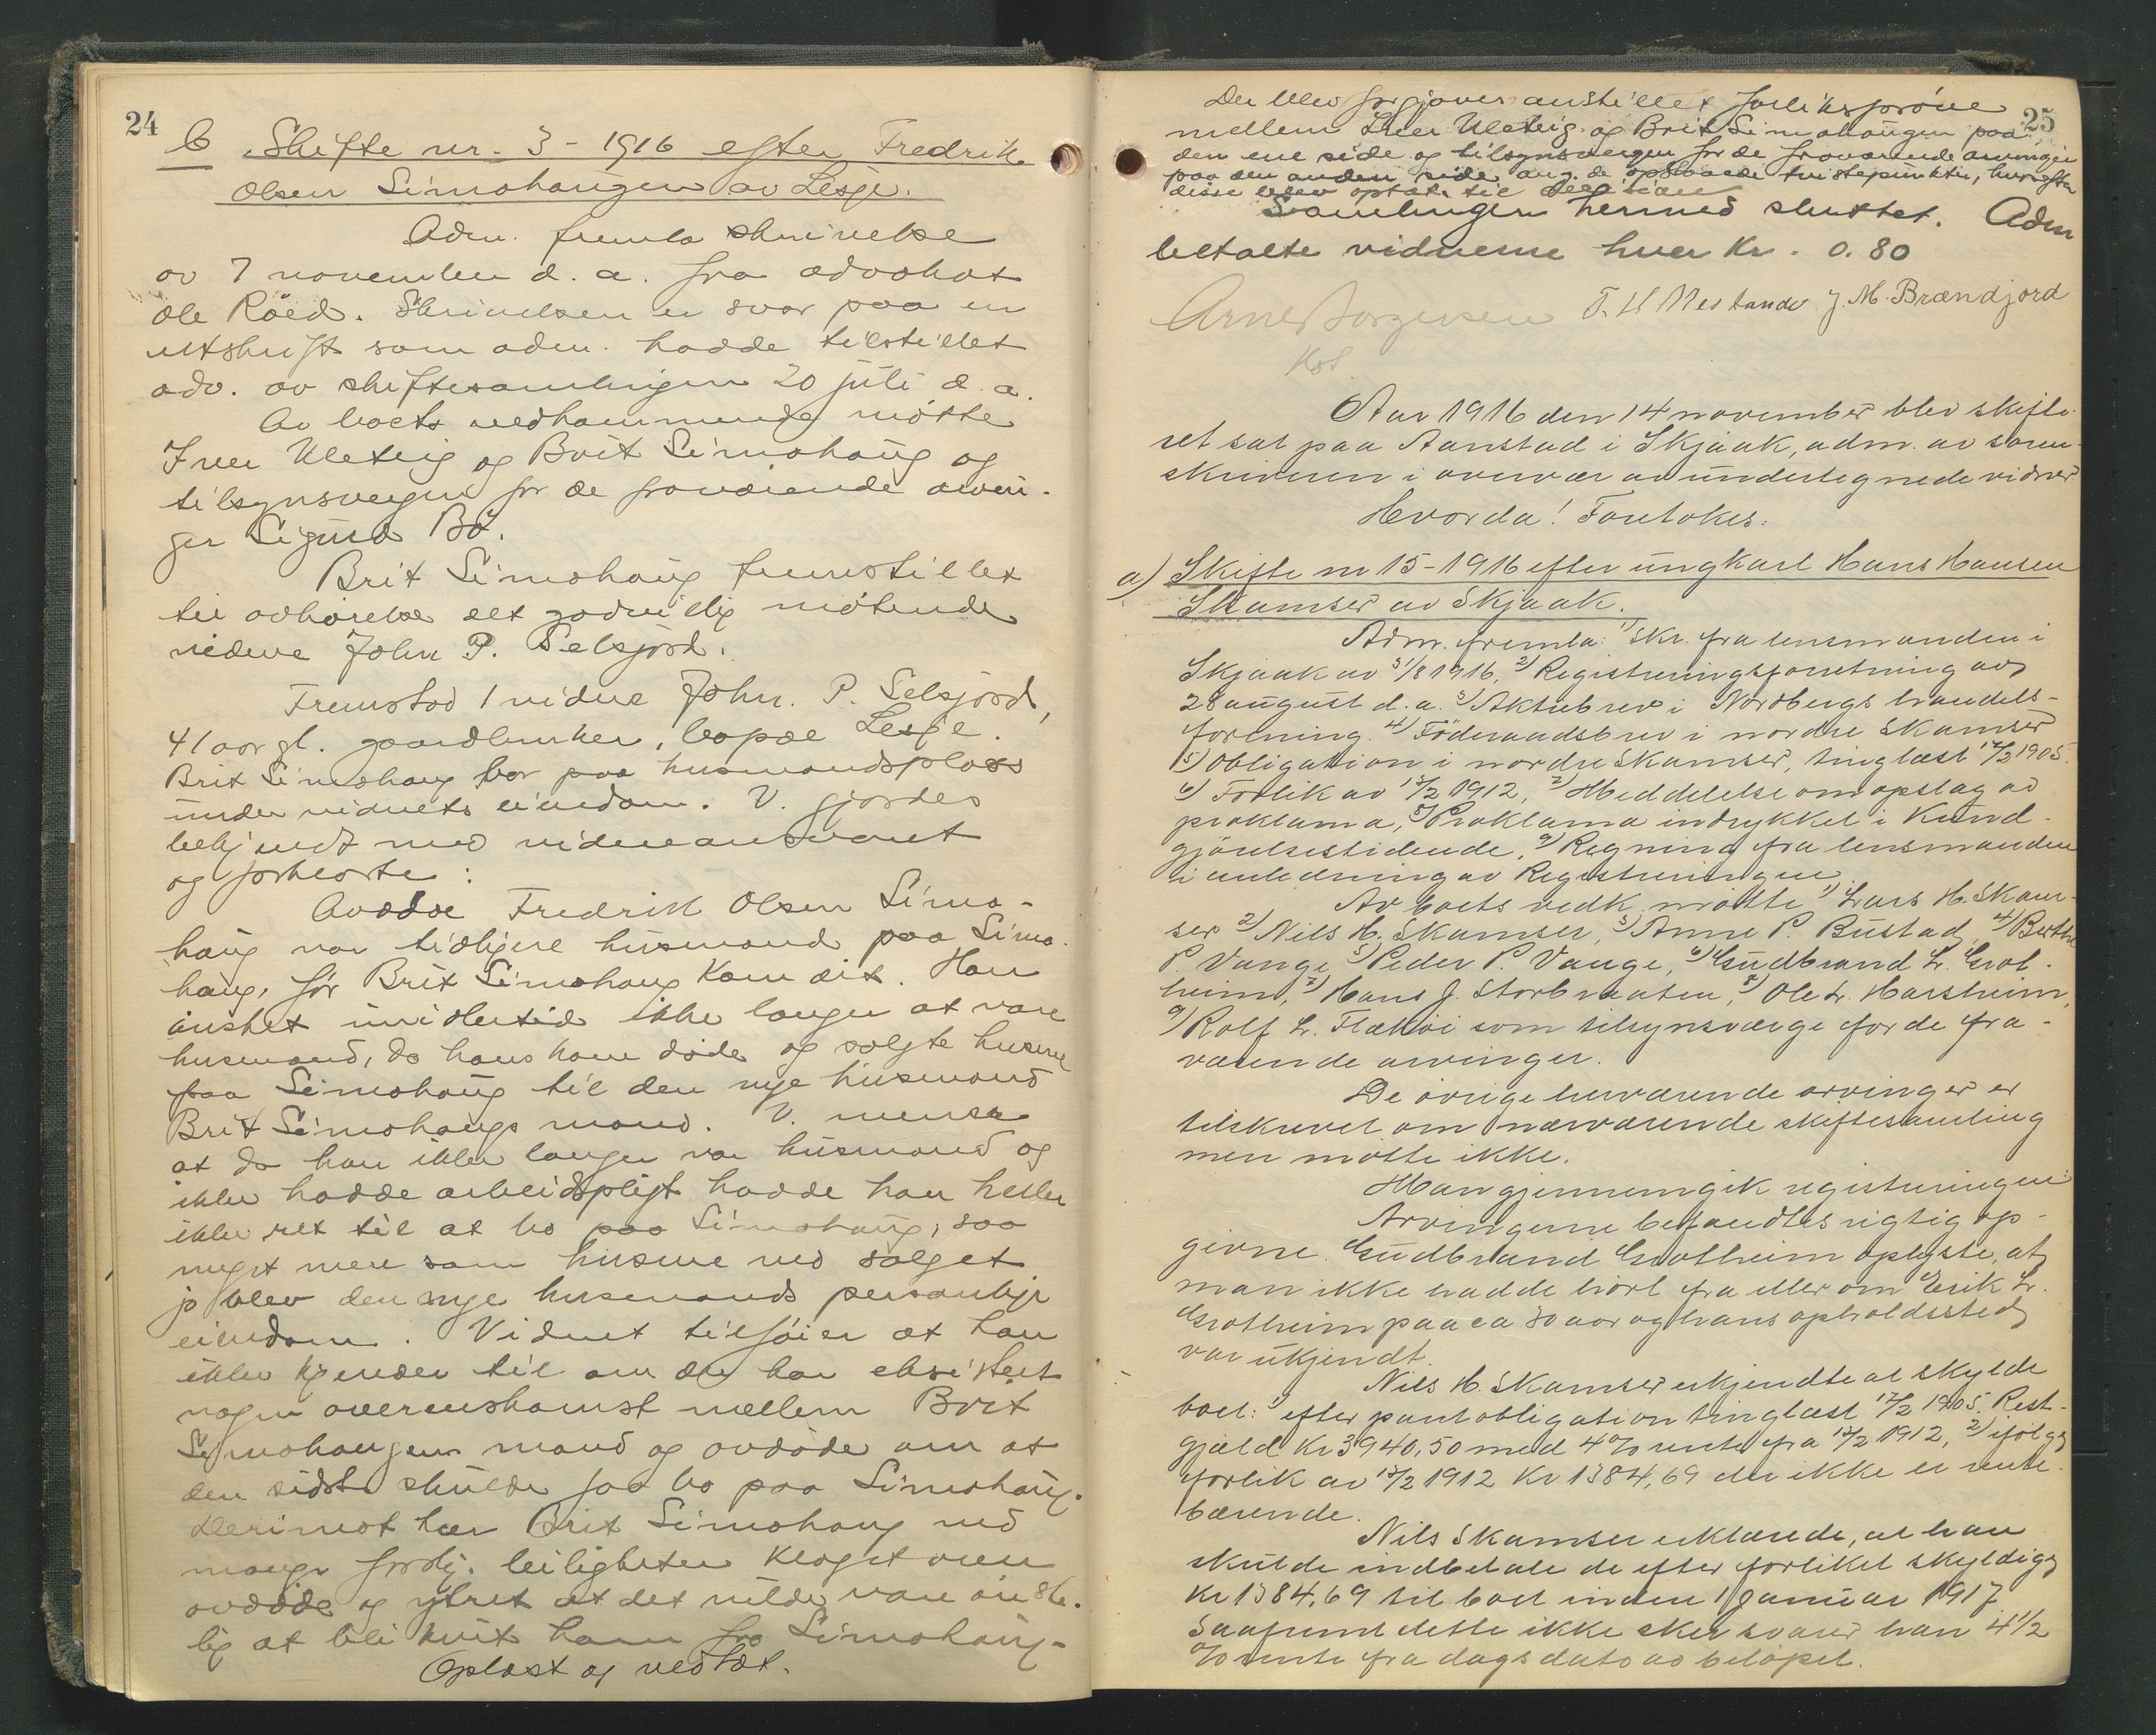 24
b Skifte nr. 3 - 1916 efter Fredrik
Olsen Simohaugen av Lesje.
Adm. fremla skrivelse
av 7 november d. a. fra advokat
Ole Röed. Skrivelsen er svar paa en
utskrift som adm. hadde tilstillet
adv. av skiftesamlingen 20 juli d. a.
Av boets vedkommende mötte
Iver Uleteig og Brit Simohaug og
tilsynsvergen for de fraværende arvin-
ger Sigurd Bö.
Brit Simohaug fremstillet
til avhörelse det godvillig mötende
vidne John P. Selsjord.
Fremstod 1 vidne John. P. Selsjord,
41 aar gl. gaardbruker, bopæl Lesje.
Brit Simohaug bor paa husmandsplass
under vidnets eiendom. V. gjordes
bekjendt med vidneansvaret
og forklarte:
Avdöde Fredrik Olsen Simo-
haug var tidligere husmand paa Simo-
haug, för Brit Simohaug kom dit. Han
önsket imidlertid ikke længer at være
husmand, da hans kone döde og solgte husene
paa Simohaug til den nye husmand
Brit Simohaugs mand. V. mener
at da han ikke længer var husmand og
ikke hadde arbeidspligt hadde han heller
ikke ret til at bo paa Simohaug, saa
meget mere som husene ved salget
jo blev den nye husmands personlige
eiendom. Vidnet tilföier at han
ikke kjender til om der har eksistert
nogen overenskomst mellem Brit
Simohaugen mand og avdöde om at
den sidste skulde faa bo paa Simohaug.
Derimot har Brit Simohaug ved
mange forskj. leiligheter klaget over
avdöde og ytret at det vilde være önske-
lig at bli kvit ham fra Simohaug.
Oplæst og vedtat.
25
Der blev forgjæves anstillet forlikspröve
mellem Iver Uleteig og Brit Simohaugen paa
den ene side og tilsynsvergen for de fraværende arvinger
paa den anden side ang. de opstaaede tvistepunkter, hvorefter
disse blev optat til decision
Samlingen hermed sluttet. Adm
betalte vidnerne hver Kr. 0.80
Arne Jörgensen T. H. Nestande J. M. Brændjord
Kst.
Aar 1916 den 14 november blev skifte-
ret sat paa Aanstad i Skjaak, adm. av soren-
skriveren i overvær av undertegnede vidner
Hvorda! Foretokes:
a) Skifte nr 15-1916 efter ungkarl Hans Hansen
Skamser av Skjaak.
Adm. fremla: 1) Skr. fra lensmanden i
Skjaak av 31/8 1916, 2) Registreringsforretning av
28 august d. a. 3) Aktiebrev i Nordbergs handels-
forening. 4) Föderaadsbrev i nordre Skamser
5) Obligation i nordre Skamser, tinglæst 17/2 1905.
6) Forlik av 13/2 1912, 7) Meddelelse om opslag av
proklama, 8) Proklama indrykket i Kund-
gjörelsestidende, 9) Regning fra lensmanden
i anledning av Registreringen
Av boets vedk. mötte 1) Lars H. Skam-
ser 2) Nils H. Skamser, 3) Anne P. Bustad, 4) Berthe
P. Vange, 5) Peder P. Vange, 6) Gudbrand L. Grot-
heim, 7) Hans J. Storbraaten, 8) Ole L. Harsheim,
9) Rolf L. Flæköi som tilsynsværge for de fra-
værende arvinger.
De övrige herværende arvinger er
tilskrevet om nærværende skiftesamling
men mötte ikke.
Man gjennemgik registreringen
Arvingerne befandtes rigtig op-
givne. Gudbrand Grotheim oplyste, at
man ikke hadde hört fra eller om Erik L.
Grotheim paa ca 30 aar og hans opholdssted
var ukjendt.
Nils H. Skamser erkjendte at skylde
boet: 1) efter pantobligation tinglæst 17/2 1905. Rest-
gjæld Kr 3940,50 med 4% rente fra 13/2 1912, 2) ifölge
forlik av 13/2 1912 Kr 1384,69 der ikke er rente-
bærende.
Nils Skamser erklærede, at han
skulde indbetale de efter forliket skyldige
Kr 1384,69 til boet inden 1 Januar 1917
Saafremt dette ikke sker svarer han 4 1/2
% rente fra dags dato av belöpet.